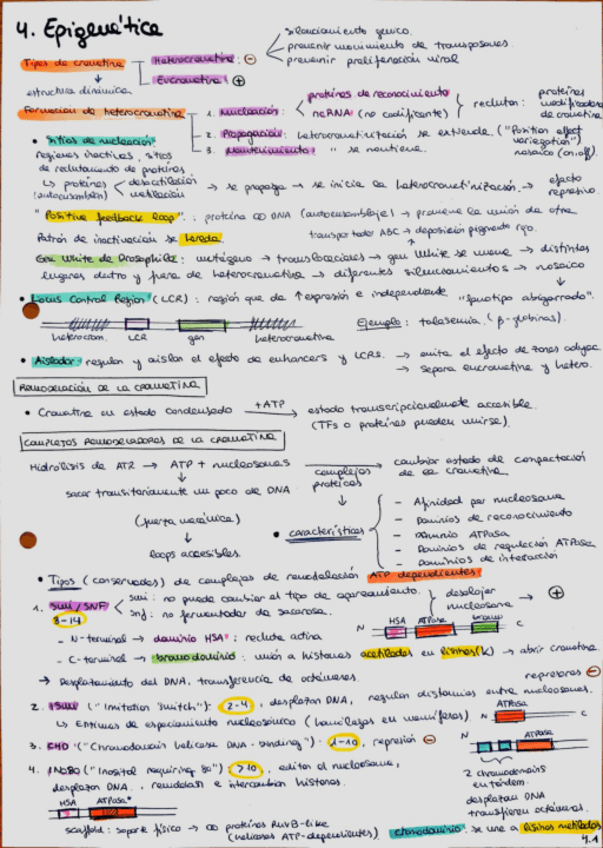 4. Epigenética
Tipos de cromatina
Heterocromatina: ⊖
silenciamiento génico.
prevenir movimiento de transposones.
prevenir proliferación viral
Eucromatina: ⊕
↓
estructura dinámica.
Formación de heterocromatina
1. Nucleación:
proteínas de reconocimiento
ncRNA (no codificante)
reclutan:
proteínas
modificadoras
de cromatina
2. Propagación: heterocromatinización se extiende. ("Position effect
variegation")
3. Mantenimiento: " se mantiene.
mosaico (on/off).
• Sitios de nucleación:
regiones inactivas, sitios
de reclutamiento de proteínas
↳ proteínas
(autoensamblan)
desacetilación
metilación
→ se propaga → se inicia la heterocromatinización. → efecto
represivo.
"Positive feedback loop": proteína ∞ DNA (autoensamblaje) → promueve la unión de otra.
Patrón de inactivación se hereda.
transportador ABC → deposición pigmento rojo.
Gen White de Drosophila: mutágeno → translocaciones → gen White se mueve → distintos
lugares dentro y fuera de heterocromatina → diferentes silenciamientos → mosaico
↓
• Locus Control Region (LCR): región que da ↑ expresión e independiente
"fenotipo abigarrado".
heterocrom. LCR gen heterocromatina
Ejemplo: talasemia. (β-globinas).
• Aislador: regulan y aíslan el efecto de enhancers y LCRs. → evita el efecto de zonas adyac.
→ separa eucromatina y hetero.
REMODELACIÓN DE LA CROMATINA
• Cromatina en estado condensado +ATP → estado transcripcionalmente accesible.
(TFs o proteínas pueden unirse).
COMPLEJOS REMODELADORES DE LA CROMATINA
Hidrólisis de ATP → ATP + nucleosomas
complejos
proteicos
cambiar estado de compactación
de la cromatina.
↓
sacar transitoriamente un poco de DNA
(fuerza mecánica)
↓
loops accesibles.
• características
- Afinidad por nucleosoma
- Dominios de reconocimiento
- Dominio ATPasa
- Dominios de regulación ATPasa
- Dominios de interacción
• Tipos (conservados) de complejos de remodelación ATP dependientes:
1. SWI/SNF
8-14
swi: no puede cambiar el tipo de apareamiento.
snf: no fermentador de sacarosa.
desalojar
nucleosoma
→ ⊕
- N-terminal → dominio HSA*: recluta actina
N HSA ATPasa bromo C
- C-terminal → bromodominio: unión a histonas acetiladas en lisinas (K) → abrir cromatina.
→ Desplazamiento del DNA, transferencia de octámeros.
represores ⊖
2. ISWI ("Imitation Switch"): 2-4, desplazan DNA, regulan distancias entre nucleosomas.
↳ Enzimas de espaciamiento nucleosómico (homólogos en mamíferos)
N ATPasa C
3. CHD ("Chromodomain helicase DNA-binding"): 1-10, represión ⊖
N ATPasa
4. INO80 ("Inositol requiring 80"): >10, editar el nucleosoma,
desplazan DNA, remodelan e intercambian histonas.
2 chromodomains
en tándem.
desplazan DNA
transfieren octámeros.
HSA ATPasa*
scaffold: soporte físico → ∞ proteínas RuvB-like
(helicasas ATP-dependientes)
chromodominio: se une a lisinas metiladas
4.1